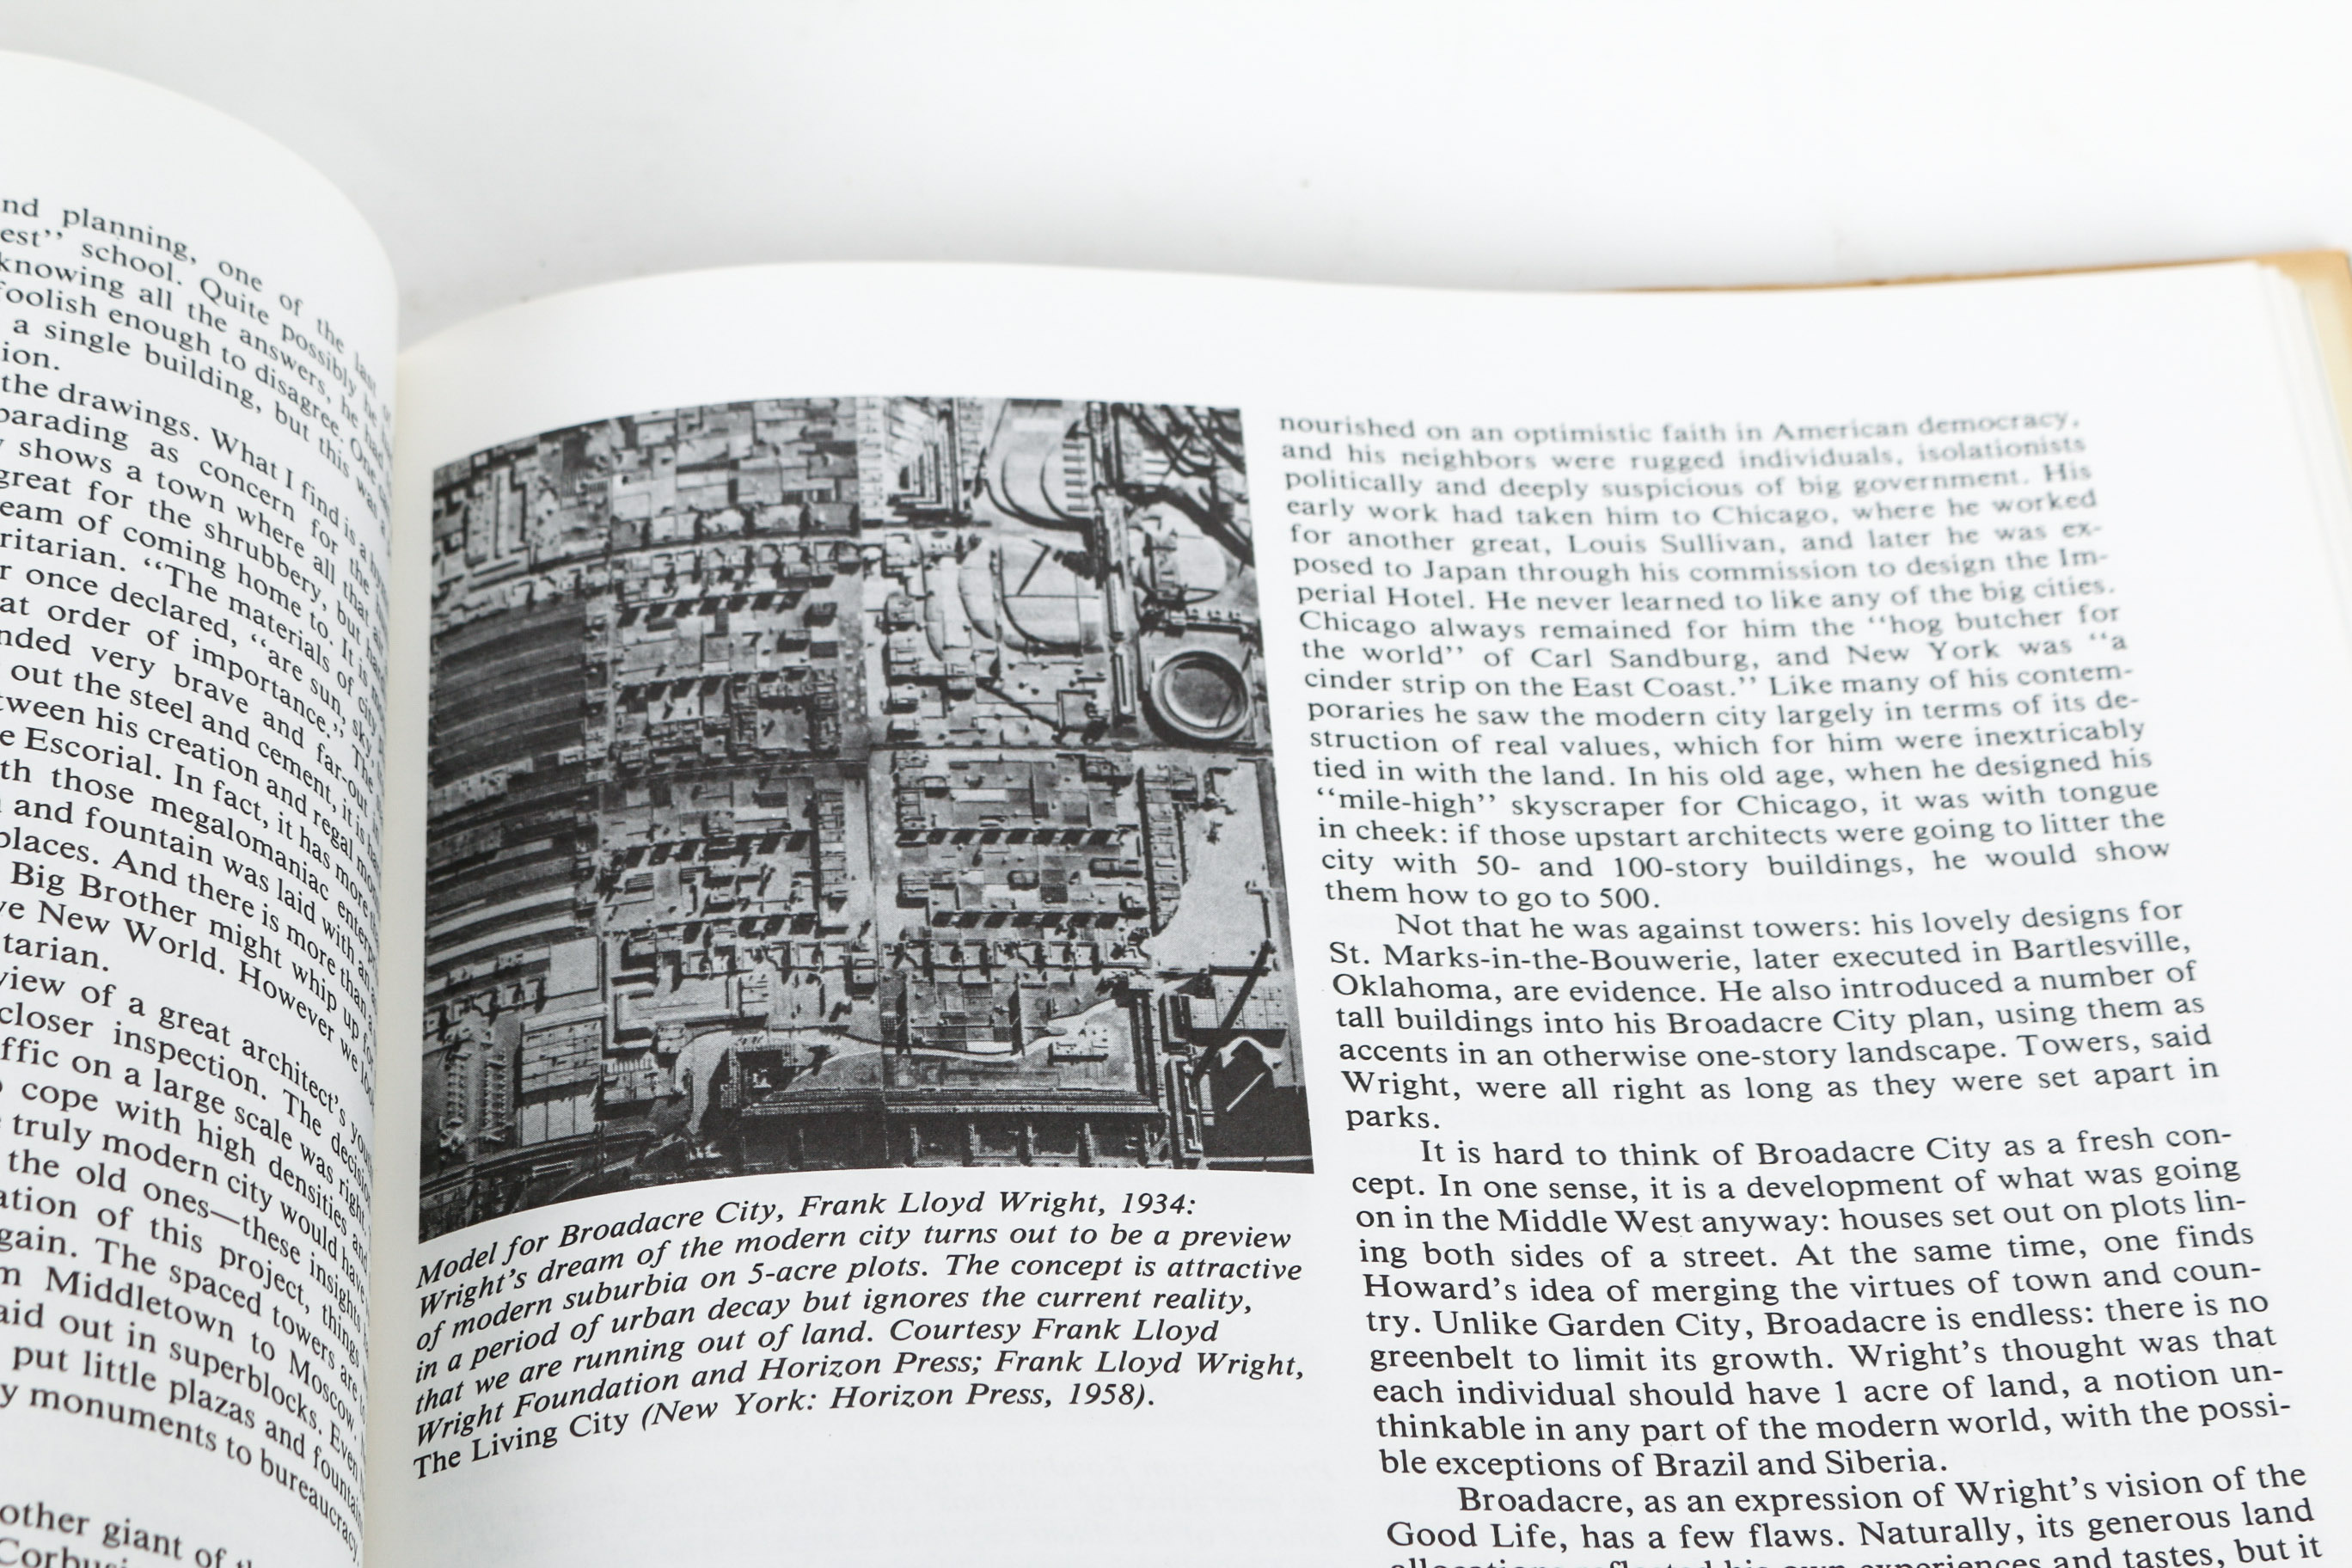 nd planning, one of the last
est” school. Quite possibly he
knowing all the answers, he had
foolish enough to disagree. One
a single building, but this was a
ion.
the drawings. What I find is a
parading as concern for the
shows a town where all that
great for the shrubbery, but
eam of coming home to. It is
ritarian. “The materials of city
r once declared, “are sun, sky,
at order of importance.” The
nded very brave and far-out
out the steel and cement, it is
tween his creation and regal
e Escorial. In fact, it has more
th those megalomaniac
and fountain was laid with an
places. And there is more than
Big Brother might whip up for
ve New World. However we look
tarian.
view of a great architect’s
closer inspection. The decision
ffic on a large scale was right,
cope with high densities and
truly modern city would have
the old ones—these insights
ation of this project, things
gain. The spaced towers are
m Middletown to Moscow.
aid out in superblocks. Even
put little plazas and fountains
y monuments to bureaucracy,
other giant of
Model for Broadacre City, Frank Lloyd Wright, 1934:
Wright’s dream of the modern city turns out to be a preview
of modern suburbia on 5-acre plots. The concept is attractive
in a period of urban decay but ignores the current reality,
that we are running out of land. Courtesy Frank Lloyd
Wright Foundation and Horizon Press; Frank Lloyd Wright,
The Living City (New York: Horizon Press, 1958).
nourished on an optimistic faith in American democracy,
and his neighbors were rugged individuals, isolationists
politically and deeply suspicious of big government. His
early work had taken him to Chicago, where he worked
for another great, Louis Sullivan, and later he was ex-
posed to Japan through his commission to design the Im-
perial Hotel. He never learned to like any of the big cities.
Chicago always remained for him the “hog butcher for
the world” of Carl Sandburg, and New York was “a
cinder strip on the East Coast.” Like many of his contem-
poraries he saw the modern city largely in terms of its de-
struction of real values, which for him were inextricably
tied in with the land. In his old age, when he designed his
“mile-high” skyscraper for Chicago, it was with tongue
in cheek: if those upstart architects were going to litter the
city with 50- and 100-story buildings, he would show
them how to go to 500.
Not that he was against towers: his lovely designs for
St. Marks-in-the-Bouwerie, later executed in Bartlesville,
Oklahoma, are evidence. He also introduced a number of
tall buildings into his Broadacre City plan, using them as
accents in an otherwise one-story landscape. Towers, said
Wright, were all right as long as they were set apart in
parks.
It is hard to think of Broadacre City as a fresh con-
cept. In one sense, it is a development of what was going
on in the Middle West anyway: houses set out on plots lin-
ing both sides of a street. At the same time, one finds
Howard’s idea of merging the virtues of town and coun-
try. Unlike Garden City, Broadacre is endless: there is no
greenbelt to limit its growth. Wright’s thought was that
each individual should have 1 acre of land, a notion un-
thinkable in any part of the modern world, with the possi-
ble exceptions of Brazil and Siberia.
Broadacre, as an expression of Wright’s vision of the
Good Life, has a few flaws. Naturally, its generous land
allocations reflected his own experiences and tastes, but it